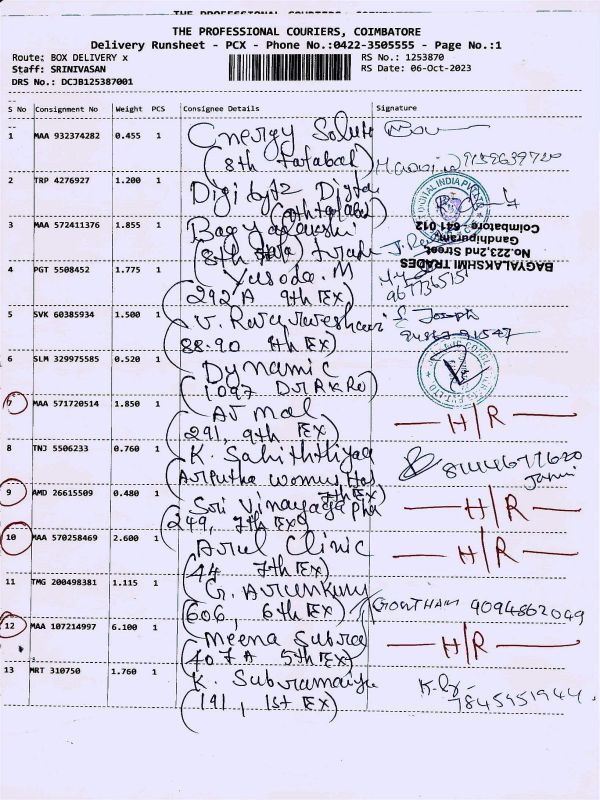 THE PROFESSIONAL COURIERS, COIMBATORE
Delivery Runsheet - PCX - Phone No.:0422-3505555 - Page No.:1
Route: BOX DELIVERY x
RS No.: 1253870
Staff: SRINIVASAN
RS Date: 06-Oct-2023
DRS No.: DCJB125387001
S No Consignment No Weight PCS Consignee Details Signature
1 MAA 932374282 0.455 1 Energy Solute
(8th
2 TRP 4276927 1.200 1 Digibytz Digital
3 MAA 572411376 1.855 1
(8th
BAGYALAKSHMI TRADES
No.223,2nd Street
Gandhipuram
Coimbatore - 641 012
4 PGT 5508452 1.775 1 Yasoda. M
(292 A 9th Ex)
5 SVK 60385934 1.500 1 V. Rajarajeshwari S. Joseph
(88-90 9th Ex)
6 SLM 329975585 0.520 1 Dynamic
(1097
7 MAA 571720514 1.850 1 Ajmal H/R
(291, 9th Ex)
8 TNJ 5506233 0.760 1 K. Sahiththiyaa 8144677620
7th Ex)
9 AMD 26615509 0.480 1 Sri Vinayaga Pha H/R
(249, 7th Ex)
10 MAA 570258469 2.600 1 Arul Clinic H/R
(44 7th Ex)
11 TMG 200498381 1.115 1 G. Arunkumar GOWTHAM 9094862049
(606, 6th Ex)
12 MAA 107214997 6.100 1 Meena Subra H/R
(407 A 5th Ex)
13 MRT 310750 1.760 1 K. Subramaiya
(191, 1st Ex) 7845951944